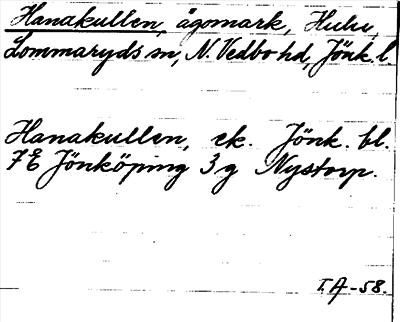 Hanakullen, ägomark, Hulu,
Lommaryds sn, N. Vedbo hd, Jönk. l.
Hanakullen, ek. Jönk. bl.
7E Jönköping 3g Nystorp.
I.A-58.